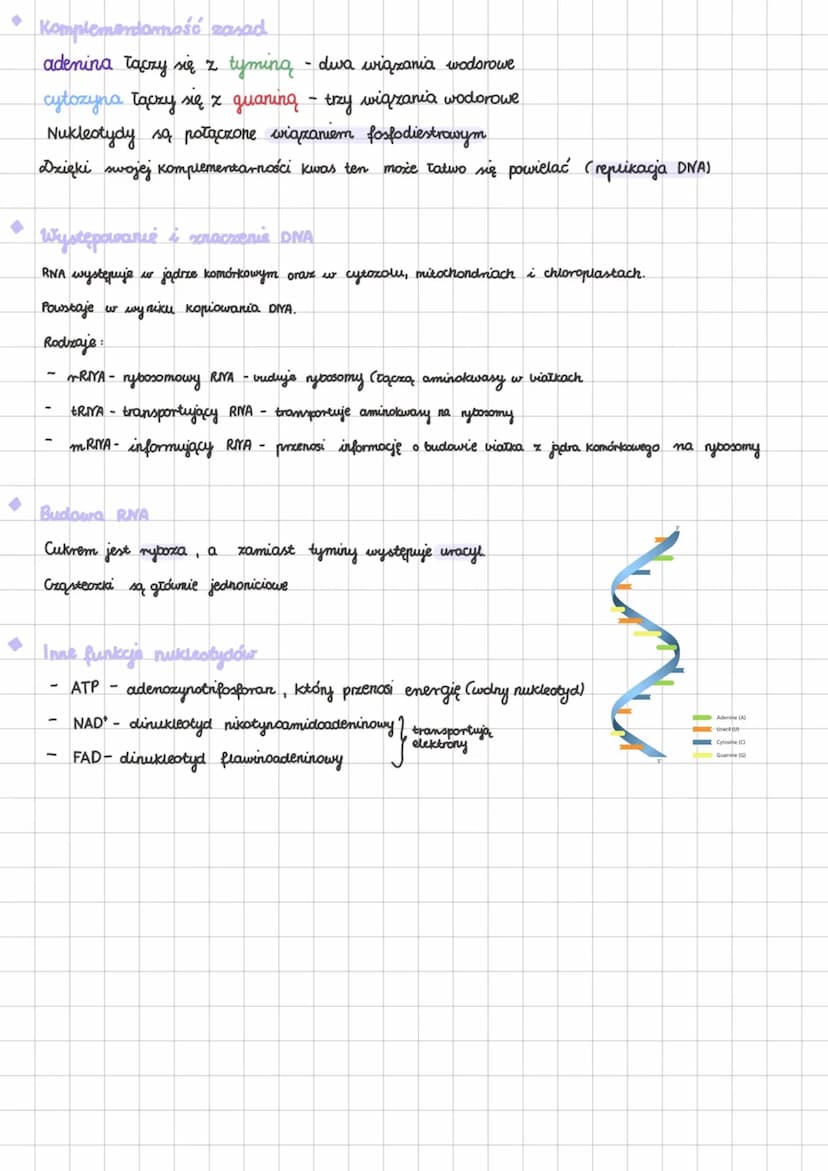 Komplementarność zasad
adenina łączy się z tyminą - dwa wiązania wodorowe
cytozyna łączy się z guaniną - trzy wiązania wodorowe
Nukleotydy są połączone wiązaniem fosfodiestrowym
Dzięki swojej komplementarności kwas ten może łatwo się powielać (replikacja DNA)
Występowanie i znaczenie DNA
RNA występuje w jądrze komórkowym oraz w cytozolu, mitochondriach i chloroplastach.
Powstaje w wyniku kopiowania DNA.
Rodzaje:
- rRNA - rybosomowy RNA - buduje rybosomy (łączą aminokwasy w białkach
- tRNA - transportujący RNA - transportuje aminokwasy na rybosomy
- mRNA - informujący RNA - przenosi informację o budowie białka z jądra komórkowego na rybosomy
Budowa RNA
Cukrem jest ryboza, a zamiast tyminy występuje uracyl
Cząsteczki są głównie jednoniciowe
Inne funkcje nukleotydów
- ATP - adenozynotrifosforan, który przenosi energię (wolny nukleotyd)
- NAD⁺ - dinukleotyd nikotynoamidoadeninowy
- FAD - dinukleotyd flawinoadeninowy
transportują
elektrony
Adenine (A)
Uracil (U)
Cytosine (C)
Guanine (G)